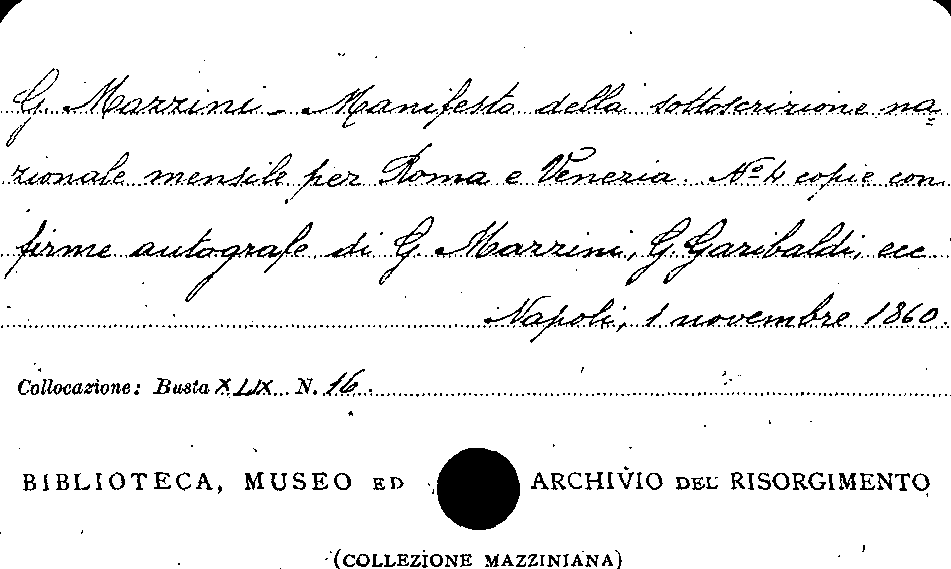 G. Mazzini - Manifesto della sottoscrizione na=
zionale mensile per Roma e Venezia. Nº 4 copie con
firme autografe di G. Mazzini, G. Garibaldi, ecc
Napoli, 1 novembre 1860.
Collocazione: Busta XLIX N. 16.
BIBLIOTECA, MUSEO ED ARCHIVIO DEL RISORGIMENTO
(COLLEZIONE MAZZINIANA)